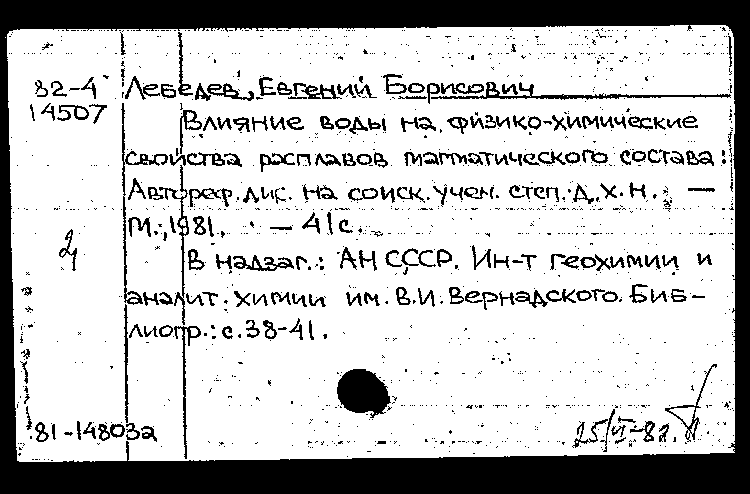 82-4 Лебедев, Евгений Борисович
14507
Влияние воды на физико-химические
свойства расплавов магматического состава:
Автореф. дис. на соиск. учен. степ. д.х.н. —
М., 1981. — 41 с.
В надзаг.: АН СССР. Ин-т геохимии и
аналит. химии им. В.И. Вернадского. Биб-
лиогр.: с. 38-41.
81-148032
25/VI-82.